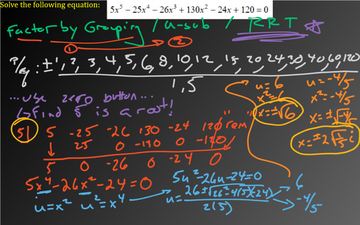 Solve the following equation:
5x⁵ − 25x⁴ − 26x³ + 130x² − 24x + 120 = 0
Factor by Grouping / u-sub / RRT
① ②
P/q : ± 1, 2, 3, 4, 5, 6, 8, 10, 12, 15, 20, 24, 30, 40, 60, 120
1, 5
...use zero button...
↳ find 5 is a root!
u = 6
x² = 6
x = ±√6
u = -4/5
x² = -4/5
x = ±√-4/5
x = ±2√1/5 i
5| 5 -25 -26 130 -24 120 "rem"
↓ 25 0 -130 0 -120
5 0 -26 0 -24 0
5x⁴ - 26x² - 24 = 0
u = x² u² = x⁴
5u² - 26u - 24 = 0
u = 26 ± √(26² - 4(5)(-24))
2(5)
6
-4/5